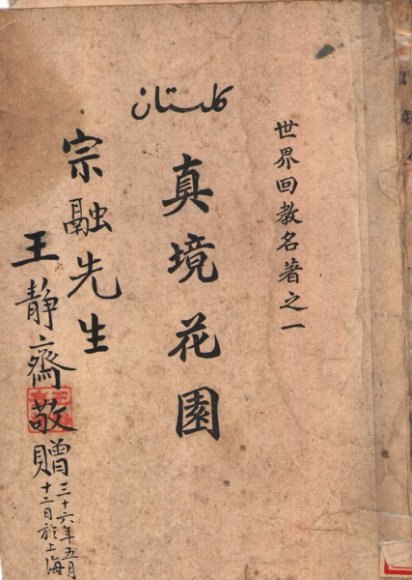 世界回教名著之一
گلستان
真境花園
宗融先生
王靜齋敬贈
三十六年五月
十二日於上海